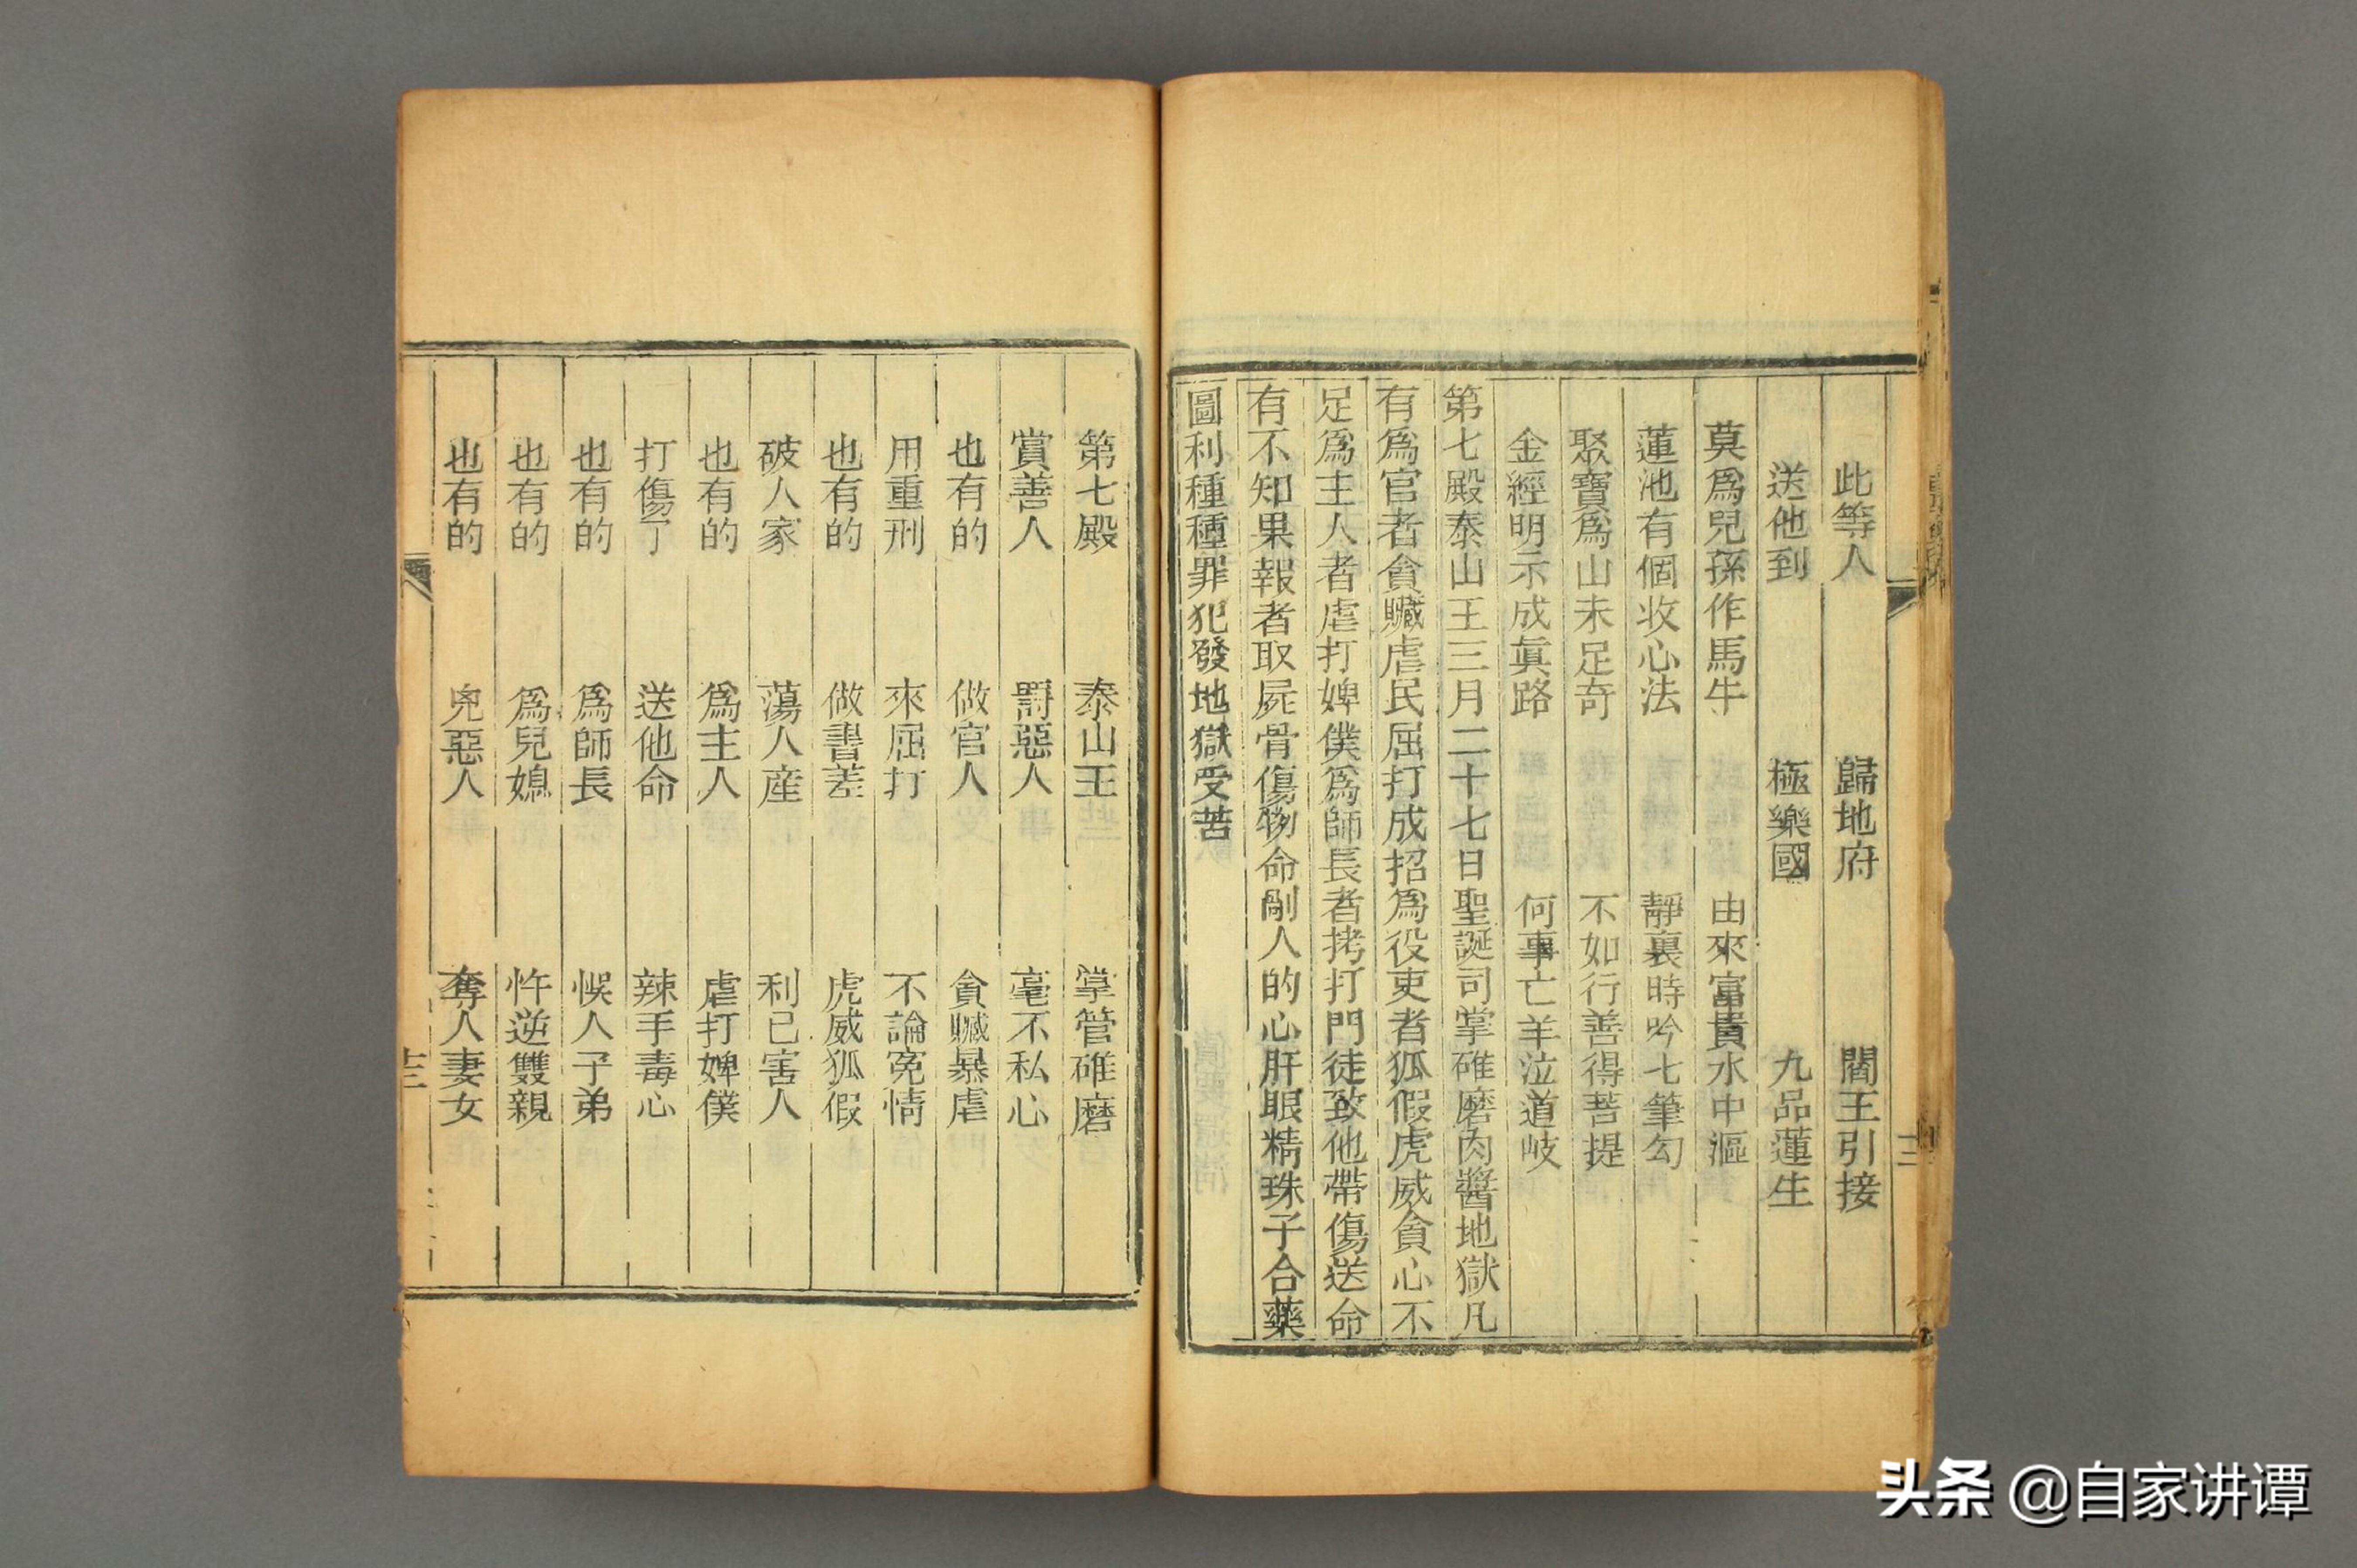 此等人 歸地府 閻王引接
送他到 極樂國 九品蓮生
莫爲兒孫作馬牛 由來富貴水中漚
蓮池有個收心法 靜裏時吟七筆勾
聚寶爲山未足奇 不如行善得菩提
金經明示成眞路 何事亡羊泣道岐
第七殿泰山王三月二十七日聖誕司掌碓磨肉醬地獄凡
有爲官者貪贓虐民屈打成招爲役吏者狐假虎威貪心不
足爲主人者虐打婢僕爲師長者拷打門徒致他帶傷送命
有不知果報者取屍骨傷物命剮人的心肝眼精珠子合藥
圖利種種罪犯發地獄受苦
十二
第七殿 泰山王 掌管碓磨
賞善人 罸惡人 毫不私心
也有的 做官人 貪贓暴虐
用重刑 來屈打 不論寃情
也有的 做書差 虎威狐假
破人家 蕩人産 利己害人
也有的 爲主人 虐打婢僕
打傷了 送他命 辣手毒心
也有的 爲師長 悞人子弟
也有的 爲兒媳 忤逆雙親
也有的 兇惡人 奪人妻女
十三
头条 @自家讲谭